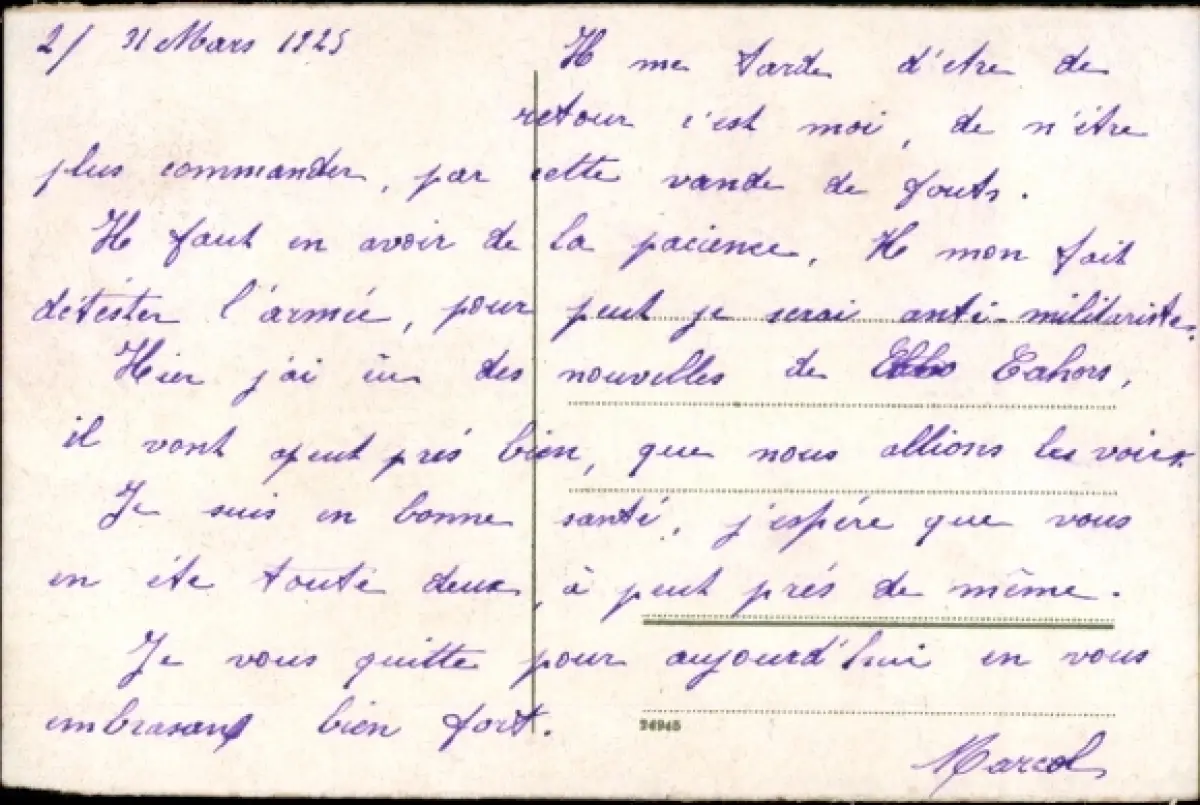 2/ 31 Mars 1925
Il me tarde d'etre de
retour c'est moi, de n'être
plus commander, par cette vande de fouts.
Il faut en avoir de la pacience, Il mon fait
détester l'armée, pour peut je serai anti-militariste.
Hier j'ai ùe des nouvelles de Cahors,
il vont apeut prés bien, que nous allions les voir.
Je suis en bonne santé, j'espére que vous
en éte touté deux, à peut prés de même.
Je vous quitte pour aujourd'hui en vous
embrasant bien fort.
24945
Marcel